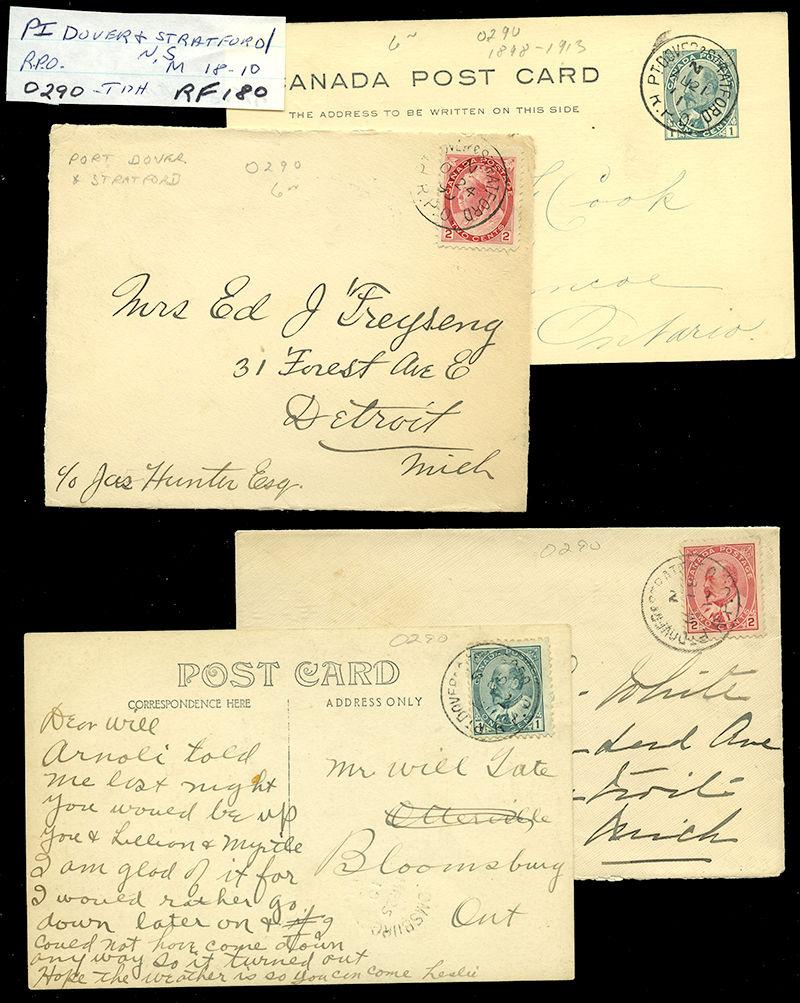 PT DOVER & STRATFORD/
R.P.O. N,S M 18-10
O290 -TDH RF180
6~ O290
1898-1913
CANADA POST CARD
THE ADDRESS TO BE WRITTEN ON THIS SIDE
PT.DOVER & STRATFORD
CANADA POSTAGE
1 CENT 1
Cook
Simcoe
Ontario.
PORT DOVER
& STRATFORD
O290
6~
STRATFORD
R.P.O.
24
CANADA POSTAGE
2 TWO CENTS 2
Mrs Ed J Freyseng
31 Forest Ave E
Detroit
Mich
c/o Jas Hunter Esq.
O290
PT.DOVER & STRATFORD
CANADA POSTAGE
2 CENTS 2
White
Ave
Detroit
Mich
O290
POST CARD
CORRESPONDENCE HERE
ADDRESS ONLY
PT.DOVER
CANADA POSTAGE
1
Dear Will
Arnoli told
me last night
you would be up
you & Lillion & Myrtle
I am glad of it for
I would rather go
down later on &
could not have come down
any way so it turned out
Hope the weather is so you can come Leslie
Mr Will Tate
Otterville
Bloomsburg
Ont